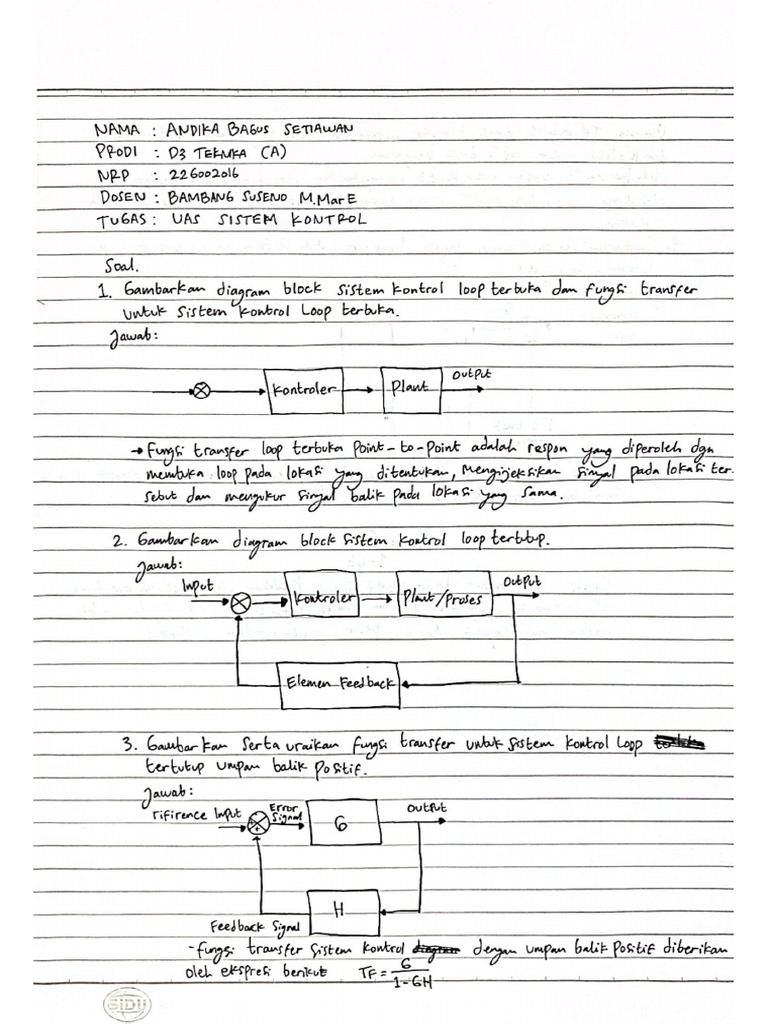 NAMA : ANDIKA BAGUS SETIAWAN
PRODI : D3 TEKNIKA (A)
NRP : 226002016
DOSEN : BAMBANG SUSENO M.MarE
TUGAS : UAS SISTEM KONTROL
Soal.
1. Gambarkan diagram block sistem kontrol loop terbuka dan fungsi transfer
untuk sistem kontrol Loop terbuka.
Jawab:
Kontroler
Plant
Output
→ Fungsi transfer loop terbuka Point-to-Point adalah respon yang diperoleh dgn
membuka loop pada lokasi yang ditentukan, Menginjeksikan sinyal pada lokasi ter.
sebut dan mengukur sinyal balik pada lokasi yang sama.
2. Gambarkan diagram block sistem kontrol loop tertutup.
Jawab:
Input
Kontroler
Plant/Proses
Output
Elemen Feedback
3. Gambarkan serta uraikan fungsi transfer untuk sistem kontrol Loop
tertutup umpan balik Positif.
Jawab:
rifirence Input
+
+
Error
Signal
G
Output
H
Feedback Signal
- fungsi transfer sistem kontrol dengan umpan balik Positif diberikan
oleh ekspresi berikut TF = G
1-GH
SiDU